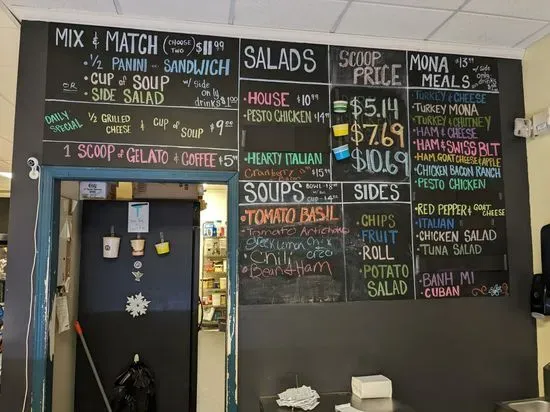 MIX & MATCH (CHOOSE TWO) $11.99
• ½ PANINI OR SANDWICH
• CUP OF SOUP w/ side only drinks $1.00
OR • SIDE SALAD
DAILY SPECIAL ½ GRILLED CHEESE & CUP OF SOUP $9.00
1 SCOOP OF GELATO & COFFEE $5.75
SALADS
• HOUSE $10.99
• PESTO CHICKEN $14.99
• HEARTY ITALIAN
Cranberry Bacon $15.99
SOUPS BOWL
CUP
• TOMATO BASIL
• Tomato Artichoke
• Greek Lemon Chix Orzo
• Chili
• Bean & Ham
SCOOP PRICE
$5.14
$7.69
$10.69
SIDES
CHIPS
FRUIT
ROLL
POTATO SALAD
MONA MEALS $13.99 w/ side only drinks
• TURKEY & CHEESE
• TURKEY MONA
• TURKEY & CHUTNEY
• HAM & CHEESE
• HAM & SWISS BLT
• HAM, GOAT CHEESE & APPLE
• CHICKEN BACON RANCH
• PESTO CHICKEN
• RED PEPPER & GOAT CHEESE
• ITALIAN
• CHICKEN SALAD
• TUNA SALAD
• BANH MI
• CUBAN